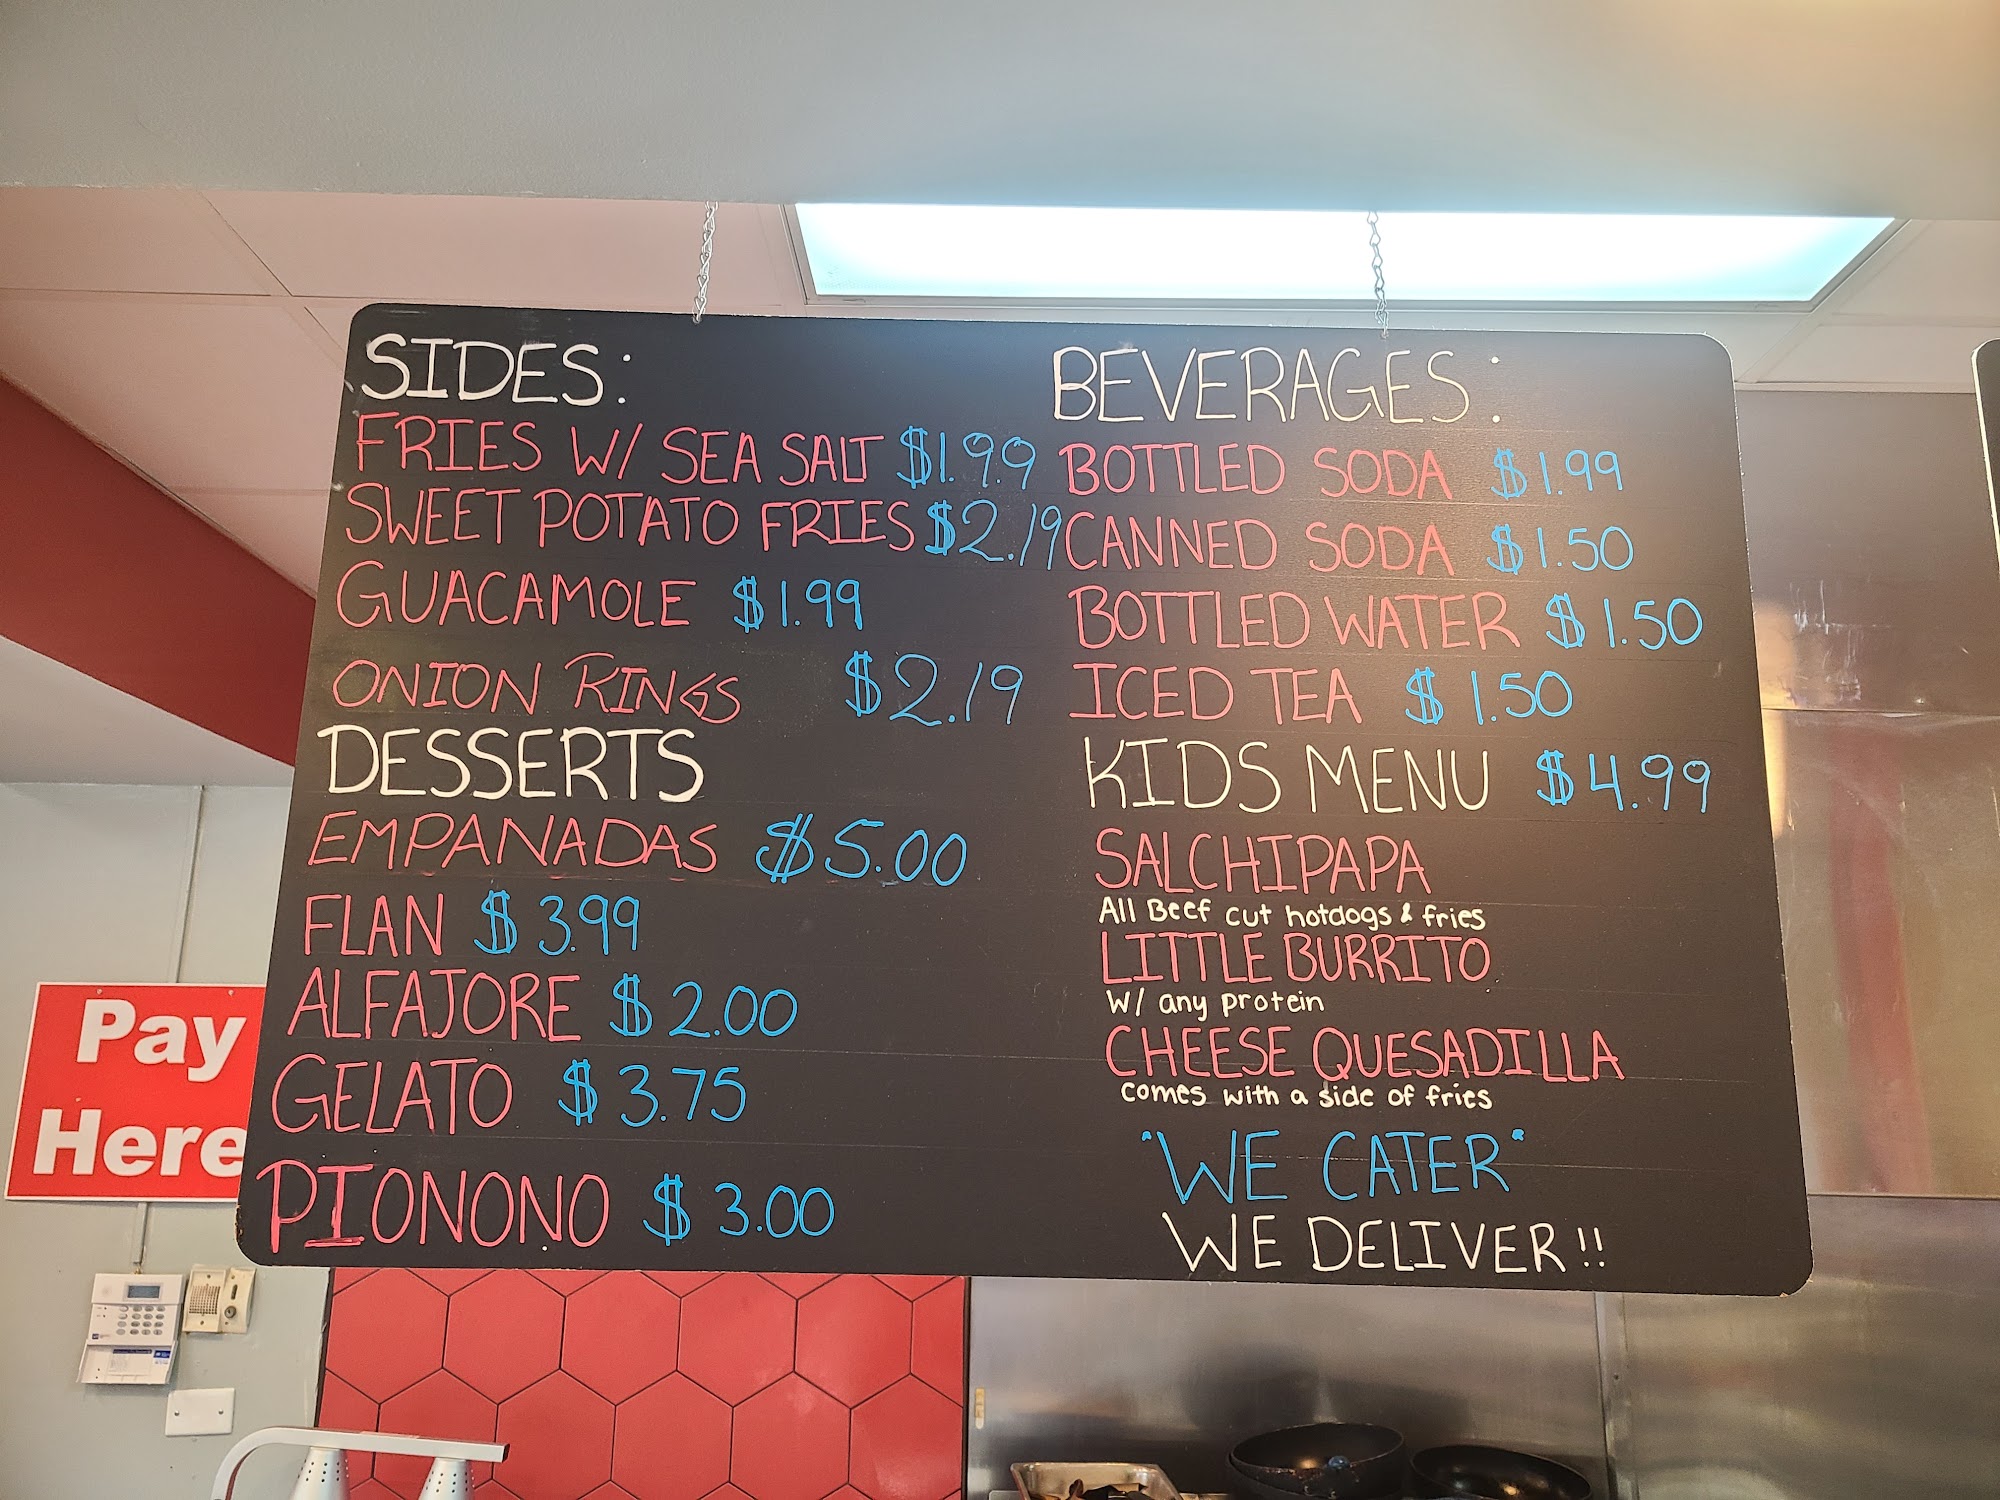 SIDES:
FRIES W/ SEA SALT $1.99
SWEET POTATO FRIES $2.19
GUACAMOLE $1.99
ONION RINGS $2.19
DESSERTS
EMPANADAS $5.00
FLAN $3.99
ALFAJORE $2.00
GELATO $3.75
PIONONO $3.00
BEVERAGES:
BOTTLED SODA $1.99
CANNED SODA $1.50
BOTTLED WATER $1.50
ICED TEA $1.50
KIDS MENU $4.99
SALCHIPAPA
All Beef cut hotdogs & fries
LITTLE BURRITO
W/ any protein
CHEESE QUESADILLA
comes with a side of fries
"WE CATER"
WE DELIVER!!
Pay
Here